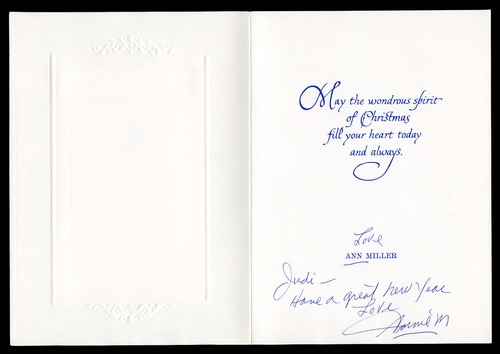 May the wondrous spirit
of Christmas
fill your heart today
and always.
Love
ANN MILLER
Judi —
Have a great new year
Love
Annie M